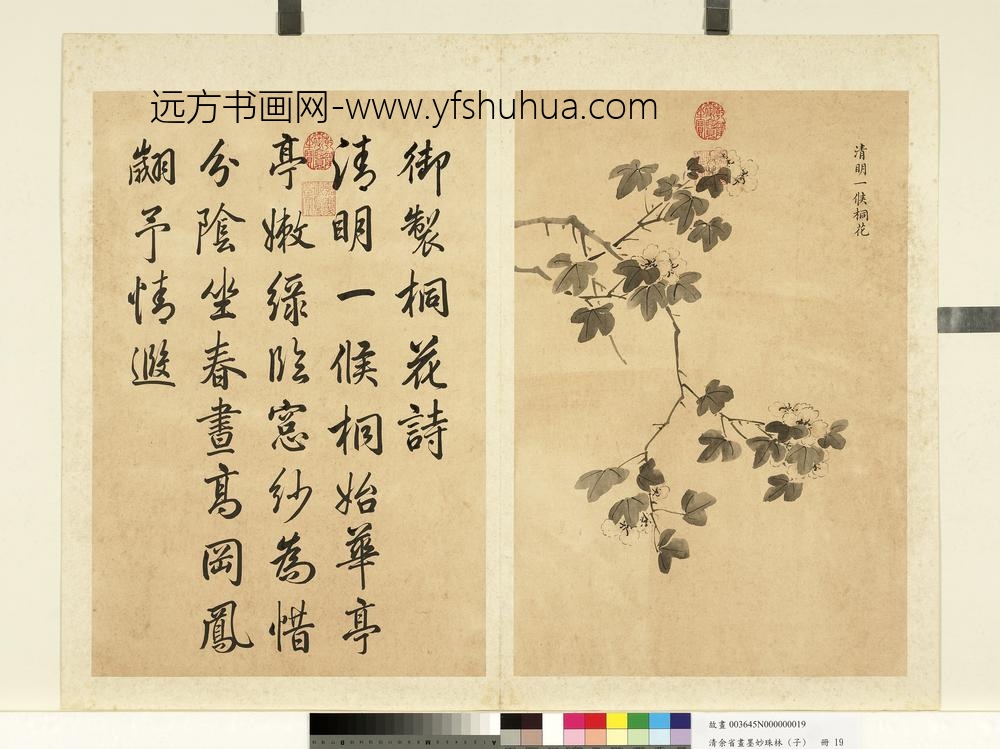 远方书画网-www.yfshuhua.com
清明一候桐花
御製桐花詩
清明一候桐始華亭
亭嫩綠临窓紗為惜
分陰坐春晝高岡鳳
翽予情遐
故畫 003645N000000019
清余省畫墨妙珠林（子） 冊 19